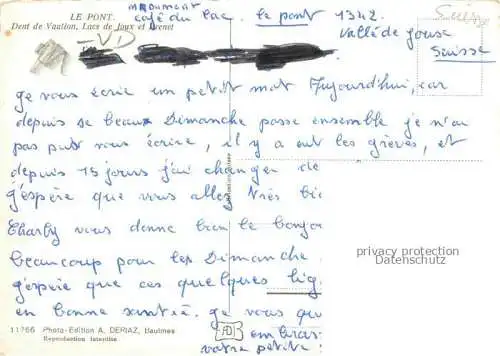 LE PONT.
Dent de Vaulion, Lacs de Joux et Brenet
café du lac. le pont 1342.
vallé de joux
Suisse
Suisse
VD
je vous écrie un petit mot Aujourd'hui, car
depuis se beaux Dimanche passe ensemble je n'ai
pas put vous écrire, il y a eut les grèves, et
depuis 15 jours j'ai changer de
j'espère que vous allez très bi
Charly vous donne bien le bonjou
beaucoup pour les Dimanche
j'espère que ces quelques lig
en bonne santée. je vous qu
embras
votre petite
privacy protection
Datenschutz
11766 Photo-Edition A. DERIAZ, Baulmes
Reproduction interdite
AD